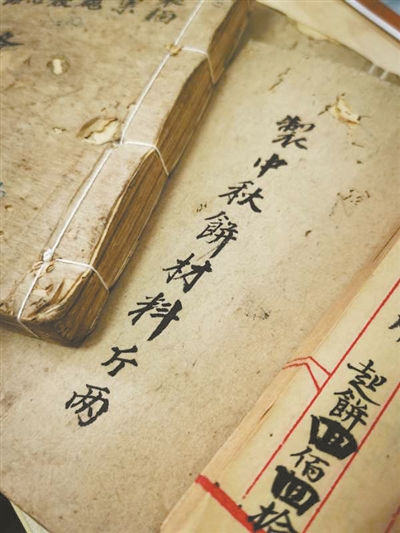 製中秋餅材料斤兩
起餅四佰四拾